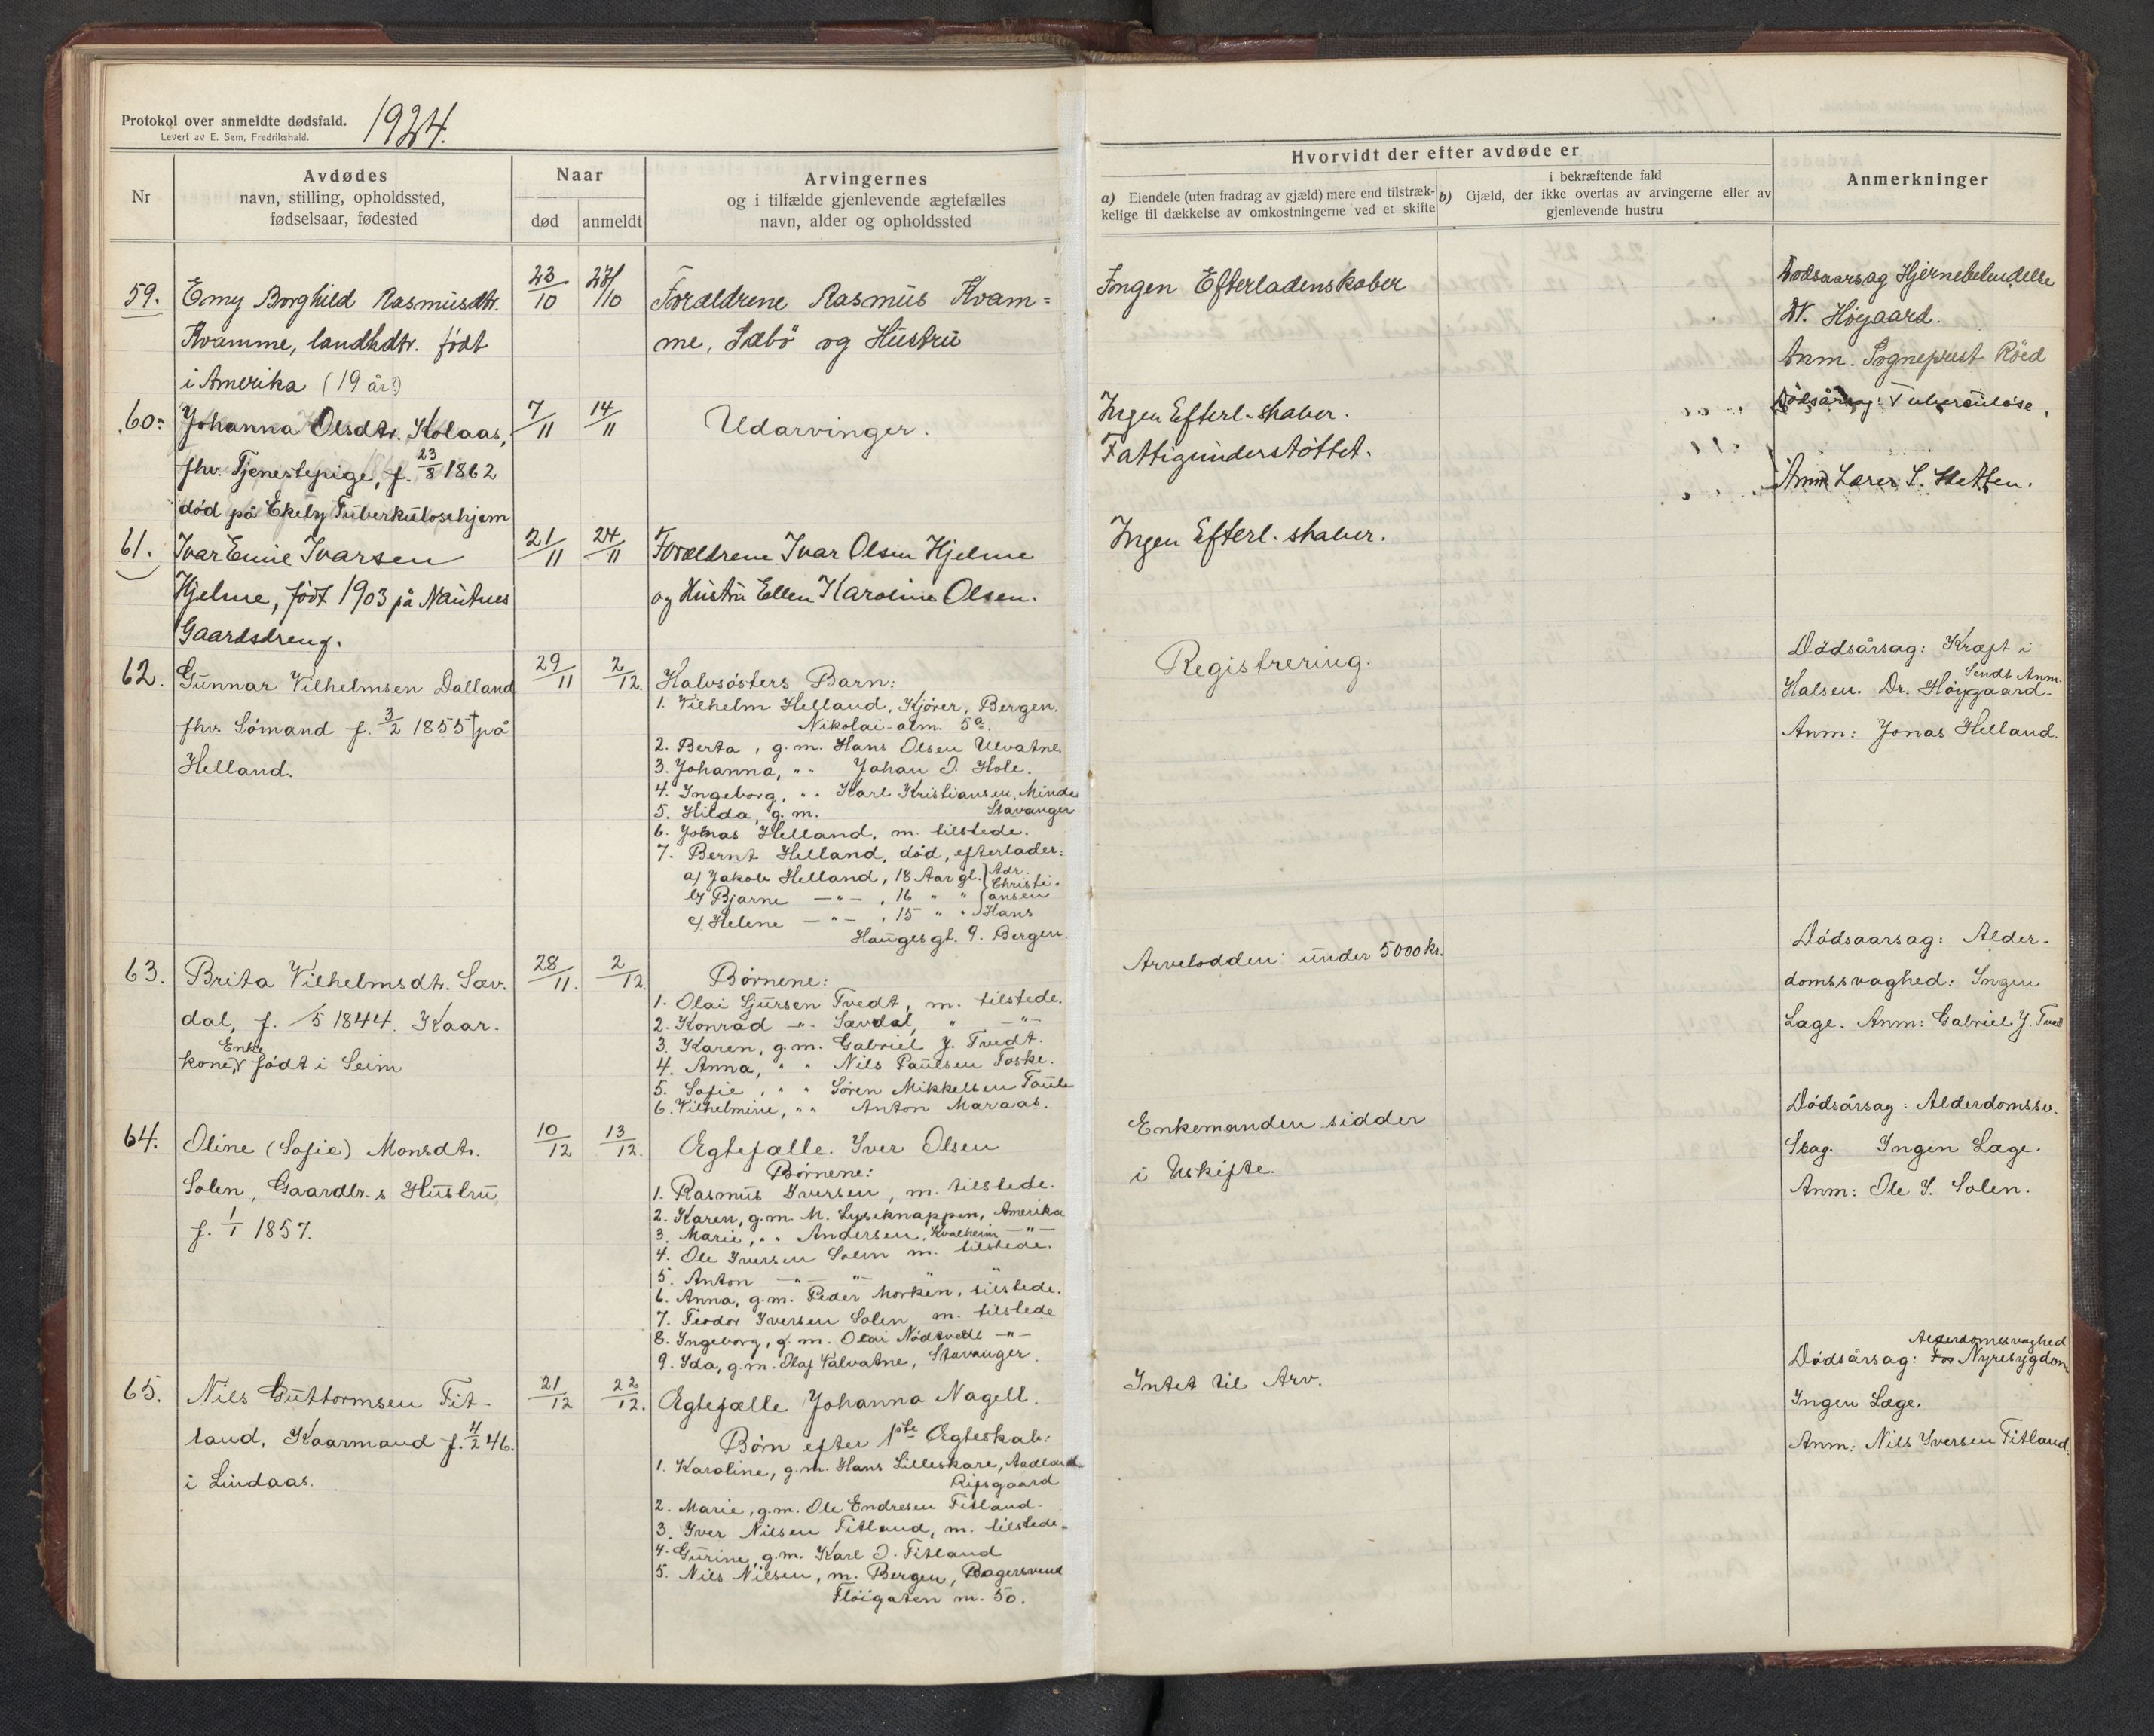 Protokol over anmeldte dødsfald.
Levert av E. Sem, Fredrikshald.
1924.
Nr
Avdødes
navn, stilling, opholdssted,
fødselsaar, fødested
Naar
død
anmeldt
Arvingernes
og i tilfælde gjenlevende ægtefælles
navn, alder og opholdssted
Hvorvidt der efter avdøde er
a) Eiendele (uten fradrag av gjæld) mere end tilstræk-
kelige til dækkelse av omkostningerne ved et skifte
i bekræftende fald
b) Gjæld, der ikke overtas av arvingerne eller av
gjenlevende hustru
Anmerkninger
59.
Emy Borghild Rasmusdtr.
Kvamme, landhdtr. født
i Amerika (19 år?)
23/10
27/10
Forældrene Rasmus Kvam=
me, Sæbö og Hustru
Ingen Efterladenskaber
Dødsaarsag Hjernebetendelse
Dr. Höygaard.
Anm. Sogneprest Röed
60.
Johanna Olsdtr. Kolaas,
fhv. Tjenestepige, f. 23/8 1862
död på Ekely Tuberkulosehjem
7/11
14/11
Udarvinger.
Ingen Efterl.skaber.
Fattigunderstöttet.
Dödsårsag: Tuberculöse,
Anm Lærer S.
61.
Ivar Emil Ivarsen
Hjelme, født 1903 på Nautnes
Gaardsdreng.
21/11
24/11
Forældrene Ivar Olsen Hjelme
og Hustru Ellen Karoline Olsen.
Ingen Efterl.skaber.
62.
Gunnar Vilhelmsen Dalland
fhv. Sömand f. 3/2 1855 † på
Helland.
29/11
2/12.
Halvsösters Barn:
1. Vilhelm Helland, Kjörer, Bergen.
Nikolai-alm. 5a.
2. Berta, g.m. Hans Olsen Ulvatne
3. Johanna, " " Johan J. Hole.
4. Ingeborg, " " Karl Kristiansen, Minde
5. Hilda, g.m. Stavanger
6. Jonas Helland, m. tilstede.
7. Bernt Helland, död, efterlader:
a) Jakob Helland, 18 Aar gl. } Adr.
Christi-
b) Bjarne —"— , 16 " " } ansen
c) Helene —"— , 15 " " } Hans
Haugesgt. 9. Bergen
Registrering.
Dödsårsag: Kræft i
Sendt Anm.
Halsen. Dr. Höygaard.
Anm: Jonas Helland.
63.
Brita Vilhelmsdtr. Sæv.
dal, f. /5 1844. Kaar.
Enke
kone, født i Seim
28/11.
2/12
Børnene:
1. Olai Sjursen Tvedt, m. tilstede.
2. Konrad —"— Sævdal, " —"—
3. Karen, g.m. Gabriel J. Tvedt.
4. Anna, " " Nils Paulsen Toske.
5. Sofie, " " Sören Mikkelsen Toule
6. Vilhelmine, " " Anton Maraas.
Arvelodden under 5000 kr.
Dödsaarsag: Alder-
domssvaghed: Ingen
Læge. Anm: Gabriel J. Tved
64.
Oline (Sofie) Monsdtr.
Solen, Gaardbr.s Hustru
f. 1/1 1857.
10/12
13/12.
Ægtefælle. Iver Olsen
Børnene:
1. Rasmus Iversen, m. tilstede.
2. Karen, g.m. M. Lyseknappen, Amerika
3. Marie, " " Andersen, Kvalheim —"—
4. Ole Iversen Solen m. tilstede.
5. Anton —"— —"—
6. Anna, g.m. Peder Morken, tilstede.
7. Teodor Iversen Solen m. tilstede
8. Ingeborg, g.m. Olai Nödtvedt —"—
9. Ida, g.m. Olaf Valvatne, Stavanger.
Enkemanden sidder
i Uskifte.
Dödsårsag: Alderdomssv.
Slag. Ingen Læge.
Anm: Ole I. Solen.
65.
Nils Guttormsen Fit-
land, Kaarmand f. 4/2 46.
i Lindaas.
21/12
22/12.
Ægtefælle Johanna Nagell.
Børn efter 1ste Ægteskab:
1. Karoline, g.m. Hans Lilleskare, Aadland
Ripsgaard
2. Marie, g.m. Ole Endresen Fitland.
3. Iver Nilsen Fitland, m. tilstede.
4. Gurine, g.m. Karl J. Fitland
5. Nils Nilsen, m. Bergen, Bagersvend
Flöigaten m. 50.
Intet til Arv.
Alderdomssvaghed
Dödsårsag: Nyresygdom
Ingen Læge.
Anm: Nils Iversen Fitland.